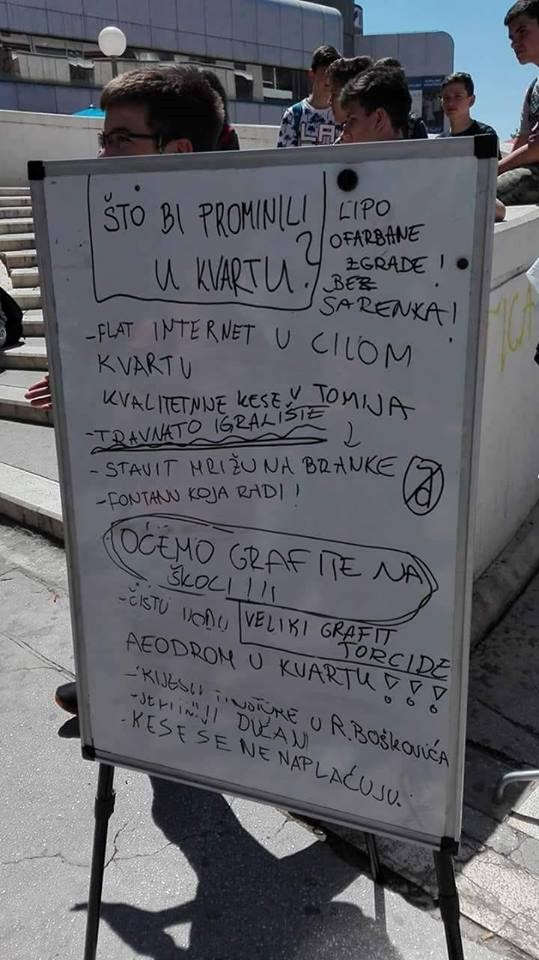 ŠTO BI PROMINILI
U KVARTU?
LIPO
OFARBANE
ZGRADE!
BEZ
ŠARENKA!
-FLAT INTERNET U CILOM
KVARTU
KVALITETNIJE KESE U TOMIJA
-TRAVNATO IGRALIŠTE
- STAVIT MRIŽU NA BRANKE
-FONTANU KOJA RADI!
OĆEMO GRAFITE NA
ŠKOLI!!!
-ČISTU VODU
VELIKI GRAFIT
TORCIDE
AEODROM U KVARTU!!!
U R. BOŠKOVIĆA
DUĆANI
-KESE SE NE NAPLAĆUJU.